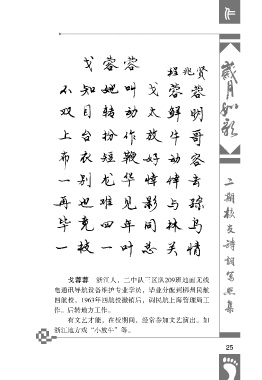 作
岁月如歌
戈蓉蓉
程兆贤
不知她叫戈蓉蓉
双目转动太鲜明
上台扮作放牛哥
布衣短鞭好动容
一别龙华悼倩去
再也难见影与踪
毕竟四年同林鸟
一枝一叶总关情
戈蓉蓉 浙江人。二中队三区队209班地面无线
电通讯导航设备维护专业学员,毕业分配到柳州民航
四航校。1963年四航校撤销后,调民航上海管理局工
作。后转地方工作。
有文艺才能。在校期间,经常参加文艺演出。如
浙江地方戏“小放牛”等。
二期校友诗词写照集
25